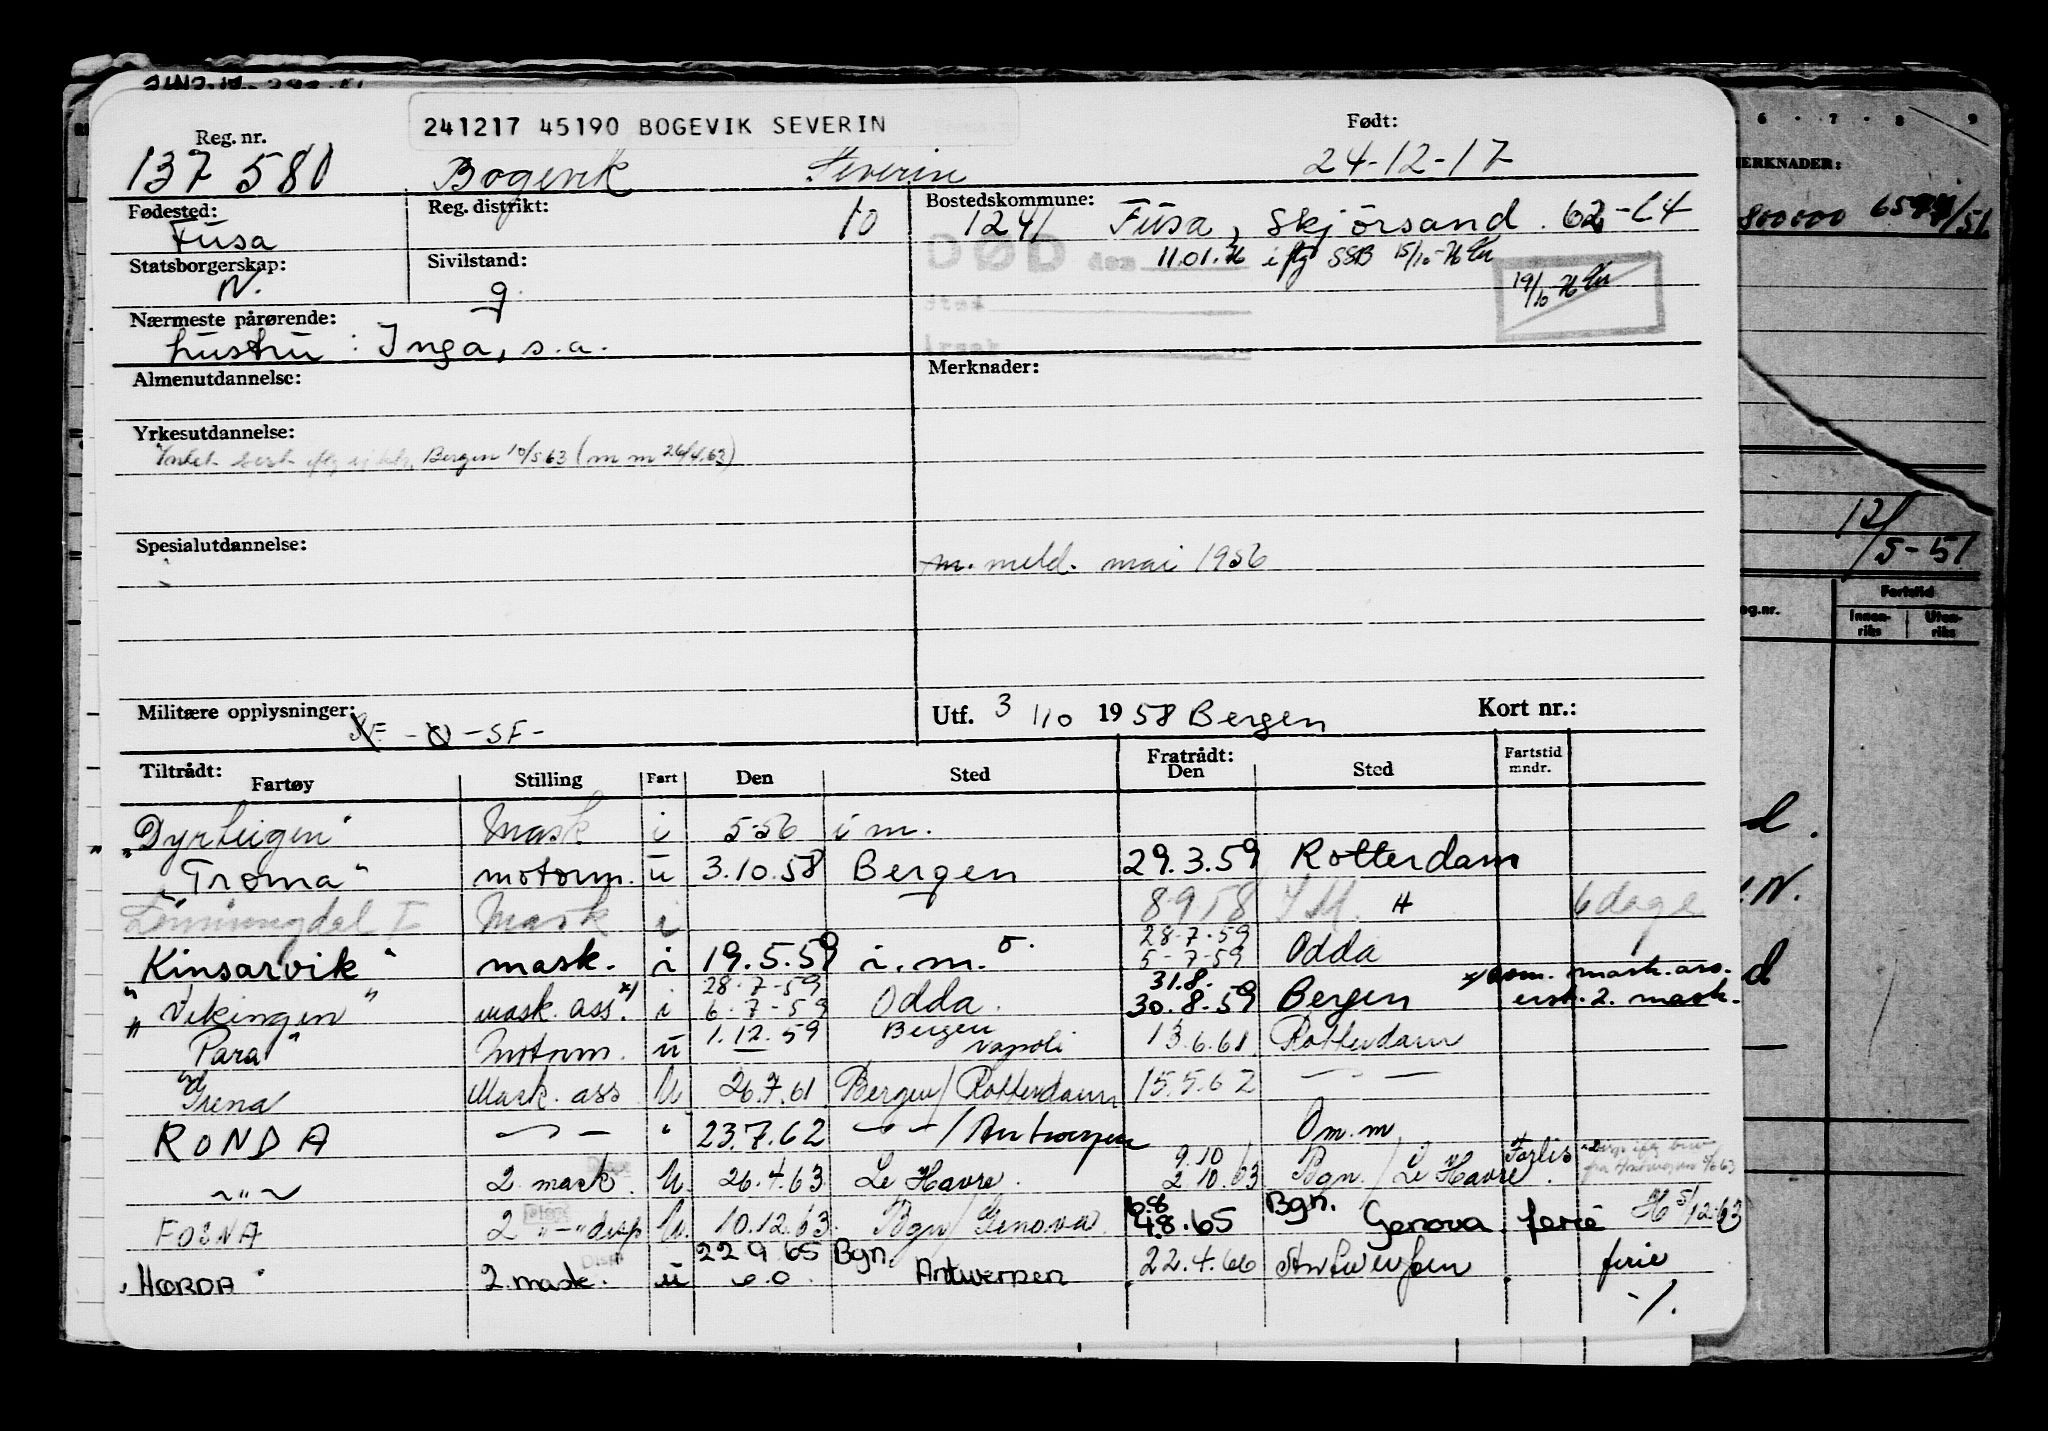 241217 45190 BOGEVIK SEVERIN
Reg. nr. Født:
137 580 Bogevik Severin 24-12-17
MERKNADER:
Fødested: Reg. distrikt: Bostedskommune:
Fusa 10 1241 Fusa, Skjörsand. 62-64
800000
DØD den 11.01.76 iflg SSB 15/10-76
Statsborgerskap: Sivilstand:
N. g
19/10-76
Nærmeste pårørende:
hustru: Inga, s.a.
Almenutdannelse: Merknader:
Yrkesutdannelse:
Bergen 10/5.63 (m m 26/4.63)
12/5-51
Spesialutdannelse:
m. meld. mai 1956
Fartstid
og.nr. Innen-riks Uten-riks
Militære opplysninger: Utf. 3/10 1958 Bergen Kort nr.:
-SF-
Tiltrådt: Fratrådt: Fartstid mndr.
Fartøy Stilling Fart Den Sted Den Sted
"Dyrteigen" Mask i 5-56 i m.
"Troma" motorm. u 3.10.58 Bergen 29.3.59 Rotterdam
Mask i 8-9 58 6 dage
28-7-59
"Kinsarvik" mask. i 19.5.59 i.m. 5-7-59 Odda
28-7-59 31.8.
"Vikingen" mask. ass. x) i 6-7-59 Odda. 30.8.59 Bergen ersk. 2. mask.
"Para" Motorm. u 1.12.59 Bergen Napoli 13.6.61 Rotterdam
"Irena" Mask. ass U 26.7.61 Bergen/Rotterdam 15.5.62 — " —
RONDA — " — " 23.7.62 — " —/Antwerpen Om.m
9.10
— " — 2 mask. U. 26.4.63 Le Havre. 2.10.63 Bgn./Le Havre. Forlis
6.8
FOSNA 2 — " — disp U. 10.12.63. Bgn/Genova. 4.8.65 Bgn. Genova. ferie H 5/12-63
22 9 65 Bgn.
"HORDA" 2. mask. u Antwerpen 22.4.66 Antwerpen ferie
-/.